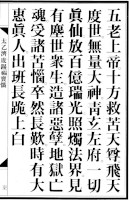 五老上帝十方救苦天尊飛天
度世無量大神青玄左府一切
眞仙放百億瑞光照燭法界見
有塵世衆生造諸惡孽地獄亡
魂受諸苦惱卒然長歎時有大
惠眞人出班長跪上白
太乙濟度錫福寶懺